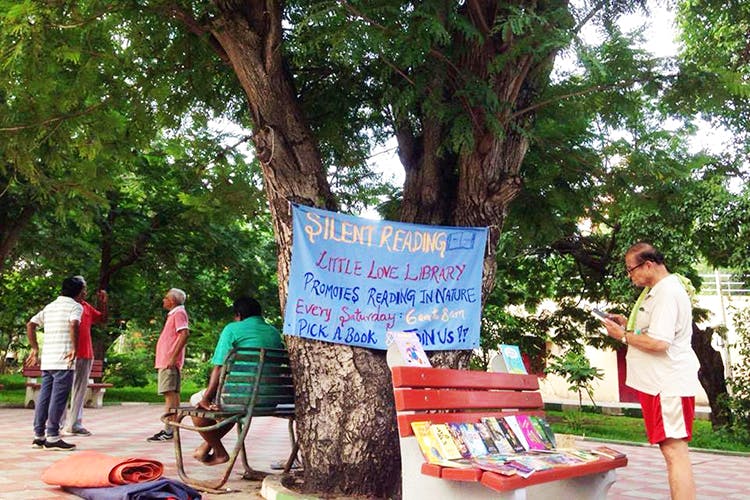 SILENT READING
LITTLE LOVE LIBRARY
PROMOTES READING IN NATURE
EVERY SATURDAY: 6am to 8am
PICK A BOOK & JOIN US!!